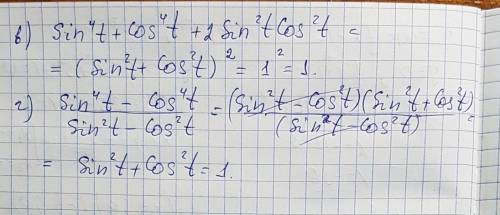 в) Sin⁴t + Cos⁴t + 2 Sin²t Cos²t =
= (Sin²t + Cos²t)² = 1² = 1.
г) (Sin⁴t − Cos⁴t)/(Sin²t − Cos²t) = (Sin²t − Cos²t)(Sin²t + Cos²t)/(Sin²t − Cos²t) =
= Sin²t + Cos²t = 1.